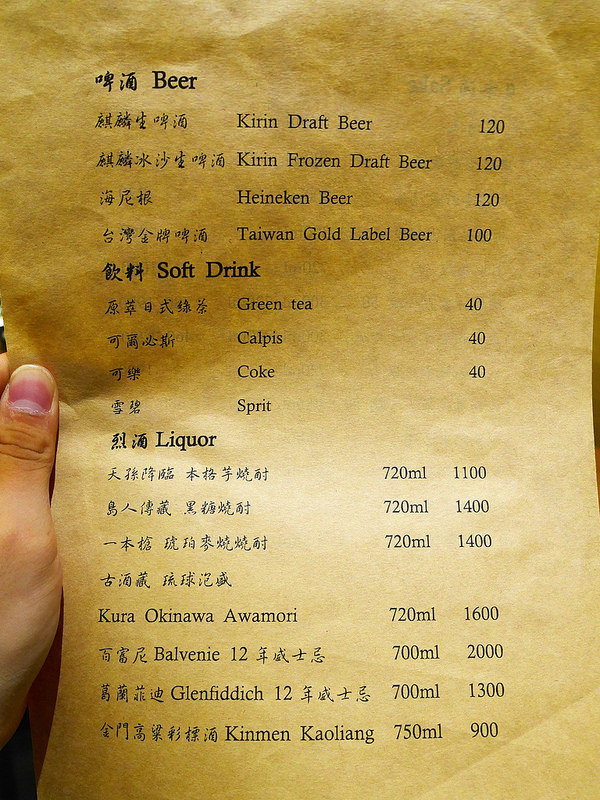 啤酒 Beer
麒麟生啤酒 Kirin Draft Beer 120
麒麟冰沙生啤酒 Kirin Frozen Draft Beer 120
海尼根 Heineken Beer 120
台灣金牌啤酒 Taiwan Gold Label Beer 100
飲料 Soft Drink
原萃日式綠茶 Green tea 40
可爾必斯 Calpis 40
可樂 Coke 40
雪碧 Sprit
烈酒 Liquor
天孫降臨 本格芋燒酎 720ml 1100
島人傳藏 黑糖燒酎 720ml 1400
一本槍 琥珀麥燒燒酎 720ml 1400
古酒藏 琉球泡盛
Kura Okinawa Awamori 720ml 1600
百富尼 Balvenie 12 年威士忌 700ml 2000
葛蘭菲迪 Glenfiddich 12 年威士忌 700ml 1300
金門高粱彩標酒 Kinmen Kaoliang 750ml 900